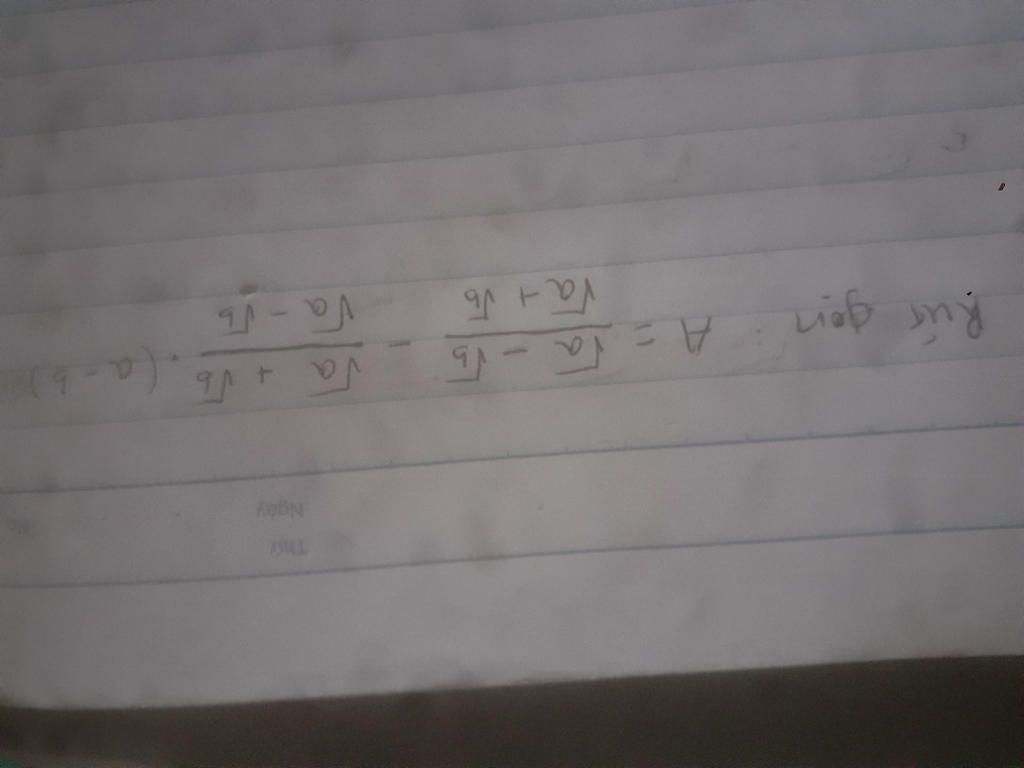 Thứ
Ngày
No
Rút gọn : A = \frac{\sqrt{a} - \sqrt{b}}{\sqrt{a} + \sqrt{b}} - \frac{\sqrt{a} + \sqrt{b}}{\sqrt{a} - \sqrt{b}} . (a - b)